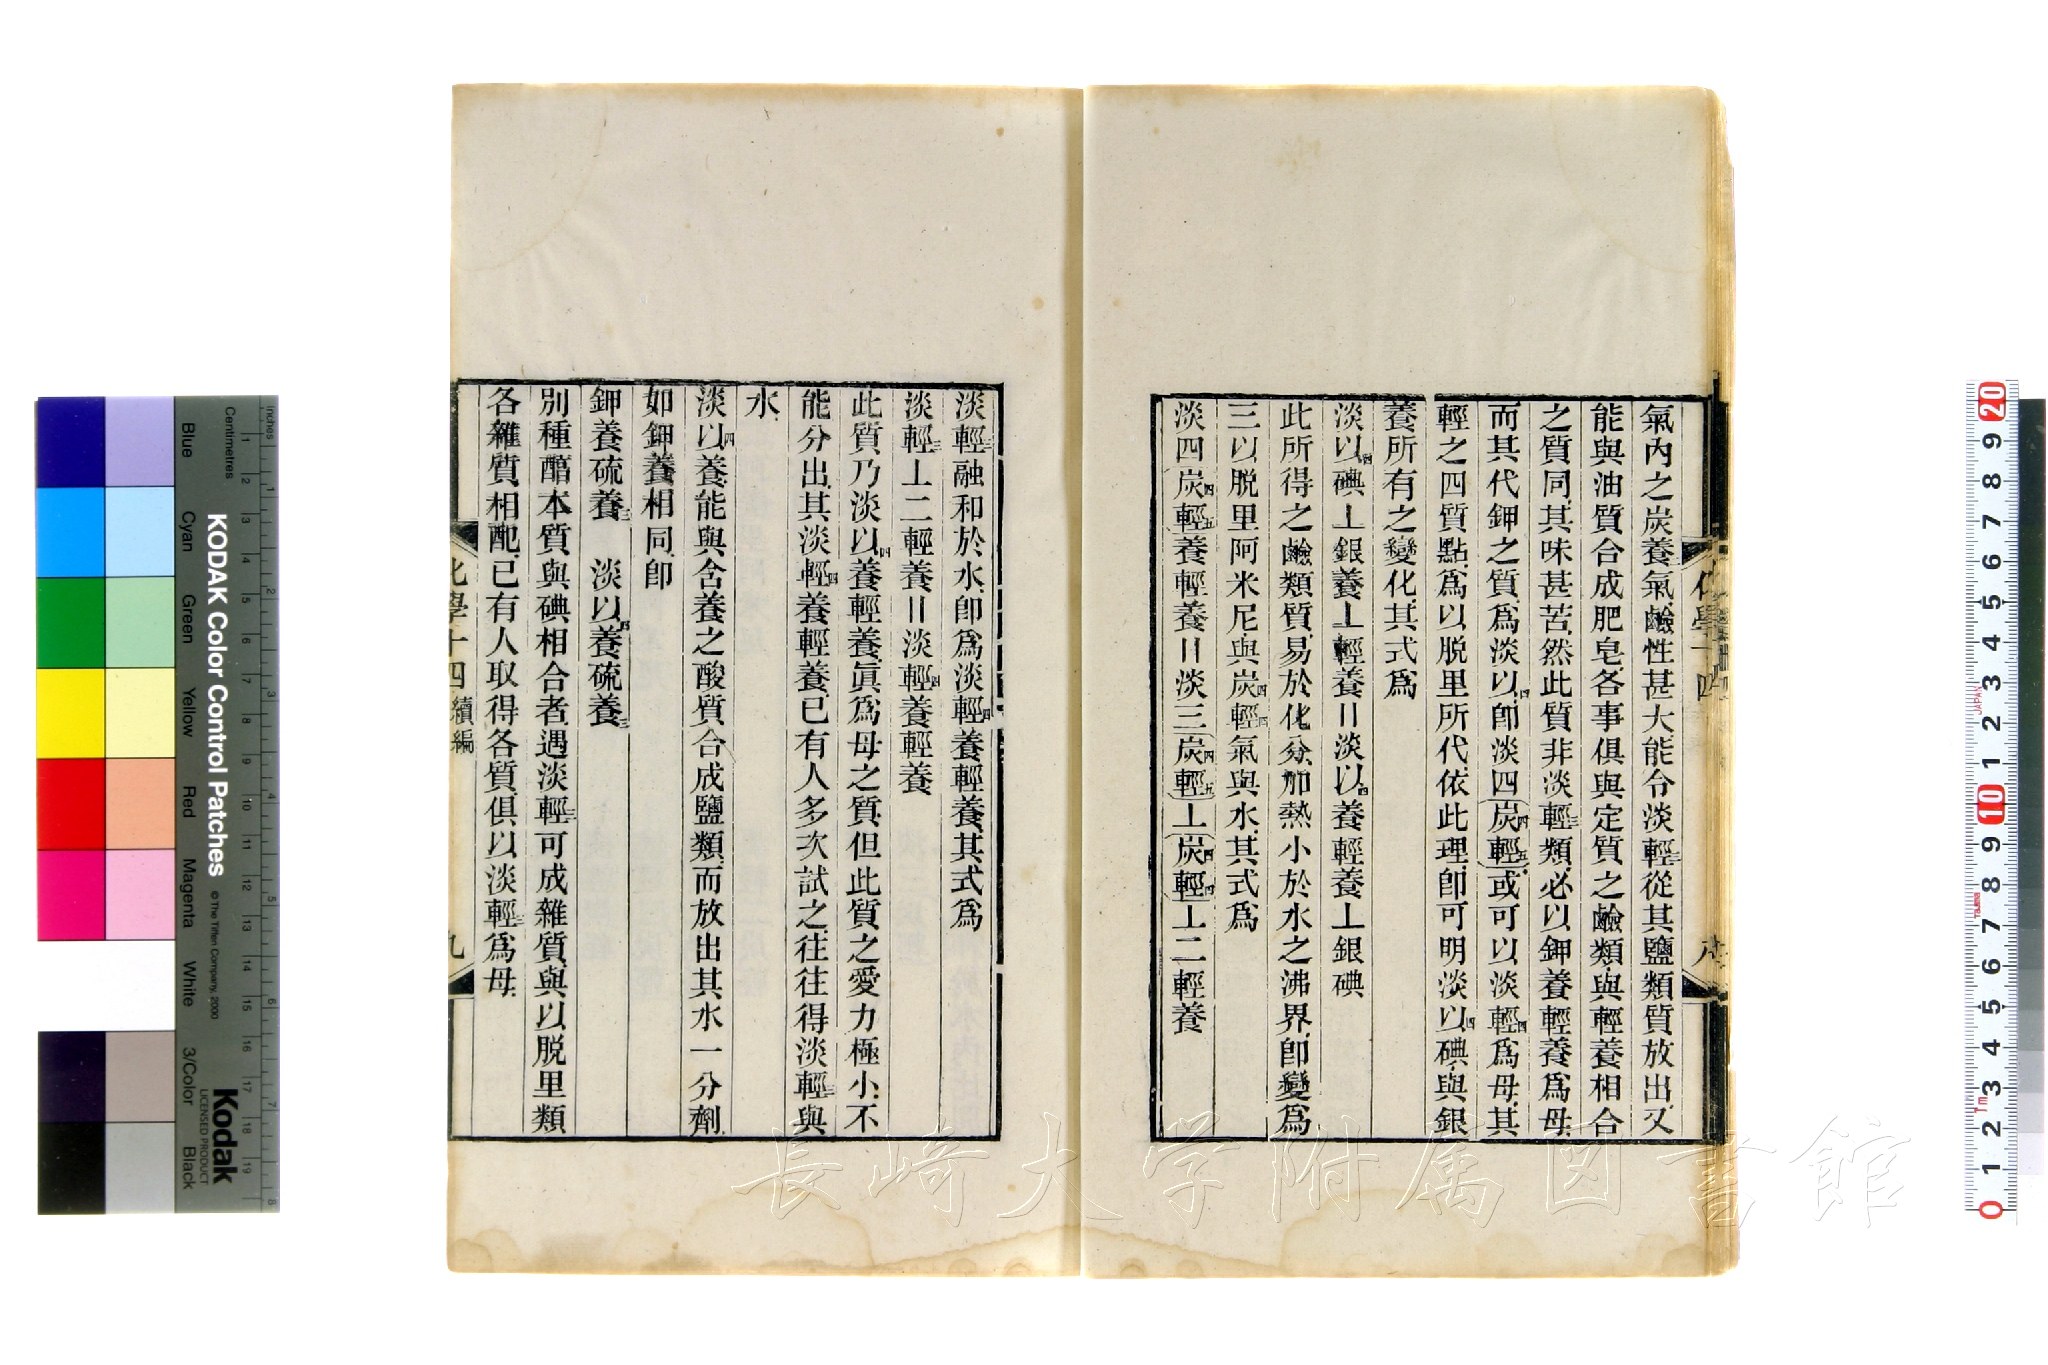 氣內之炭養氣鹼性甚大能令淡輕三從其鹽類質放出又
能與油質合成肥皂各事俱與定質之鹼類與輕養相合
之質同其味甚苦然此質非淡輕三類必以鉀養輕養爲母
而其代鉀之質爲淡以四卽淡四(炭四輕五)或可以淡輕四爲母其
輕之四質點爲以脱里所代依此理卽可明淡以四碘與銀
養所有之變化其式爲
淡以四碘⊥銀養⊥輕養〓淡以四養輕養⊥銀碘
此所得之鹼類質易於化分加熱小於水之沸界卽變爲
三以脱里阿米尼與炭四輕四氣與水其式爲
淡四(炭四輕五)養輕養〓淡三(炭四輕五)⊥(炭四輕四)⊥二輕養
化學十四
八
淡輕三融和於水卽爲淡輕四養輕養其式爲
淡輕三⊥二輕養〓淡輕四養輕養
此質乃淡以四養輕養眞爲母之質但此質之愛力極小不
能分出其淡輕四養輕養已有人多次試之往往得淡輕三與
水
淡以四養能與含養之酸質合成鹽類而放出其水一分劑
如鉀養相同卽
鉀養硫養三 淡以四養硫養三
別種醕本質與碘相合者遇淡輕三可成雜質與以脱里類
各雜質相配已有人取得各質俱以淡輕三爲母
化學十四 續編
九
長崎大学附属図書館
KODAK Color Control Patches
© The Tiffen Company, 2000
Kodak
LICENSED PRODUCT
Inches
Centimetres
Blue
Cyan
Green
Yellow
Red
Magenta
White
3/Color
Black
20
9
8
7
6
5
4
3
2
1
10
9
8
7
6
5
4
3
2
1
0
JAPAN